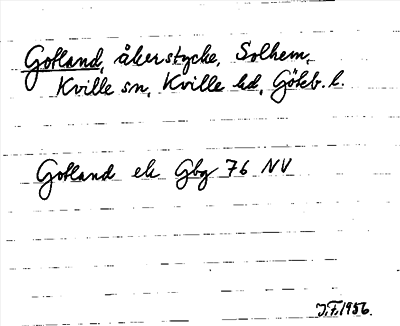 Gotland, åkerstycke, Solhem,
Kville sn, Kville hd, Göteb. l.
Gotland ek Gbg 76 NV
J.F. 1956.